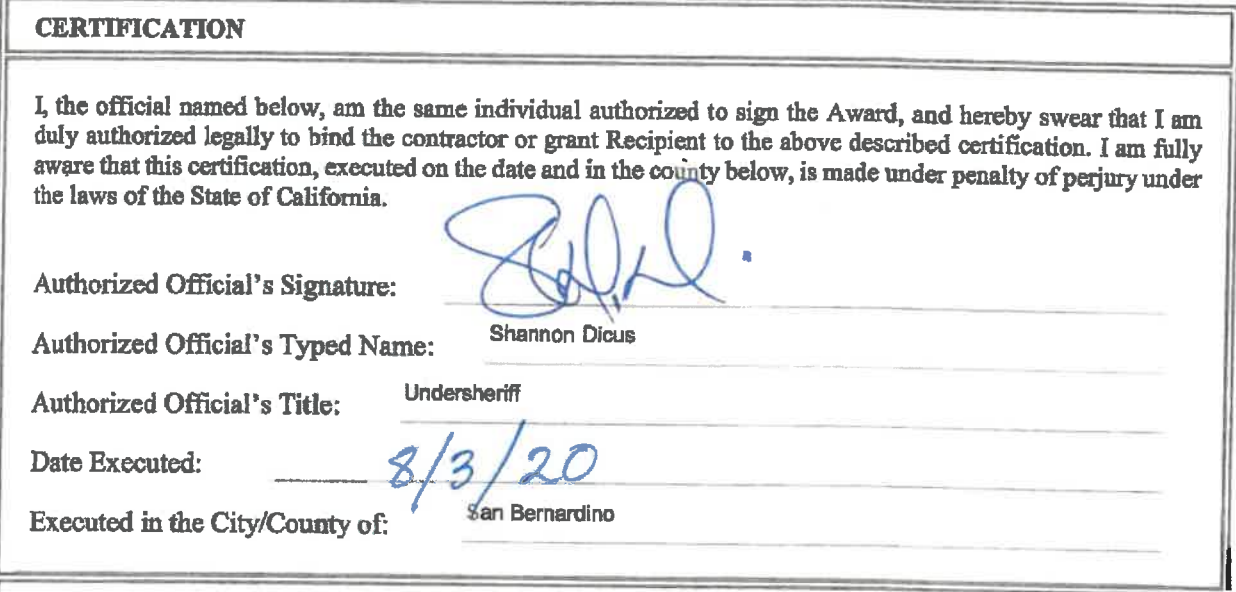 CERTIFICATION
I, the official named below, am the same individual authorized to sign the Award, and hereby swear that I am
duly authorized legally to bind the contractor or grant Recipient to the above described certification. I am fully
aware that this certification, executed on the date and in the county below, is made under penalty of perjury under
the laws of the State of California.
Authorized Official's Signature:
Authorized Official's Typed Name: Shannon Dicus
Authorized Official's Title: Undersheriff
Date Executed: 8/3/20
Executed in the City/County of: San Bernardino